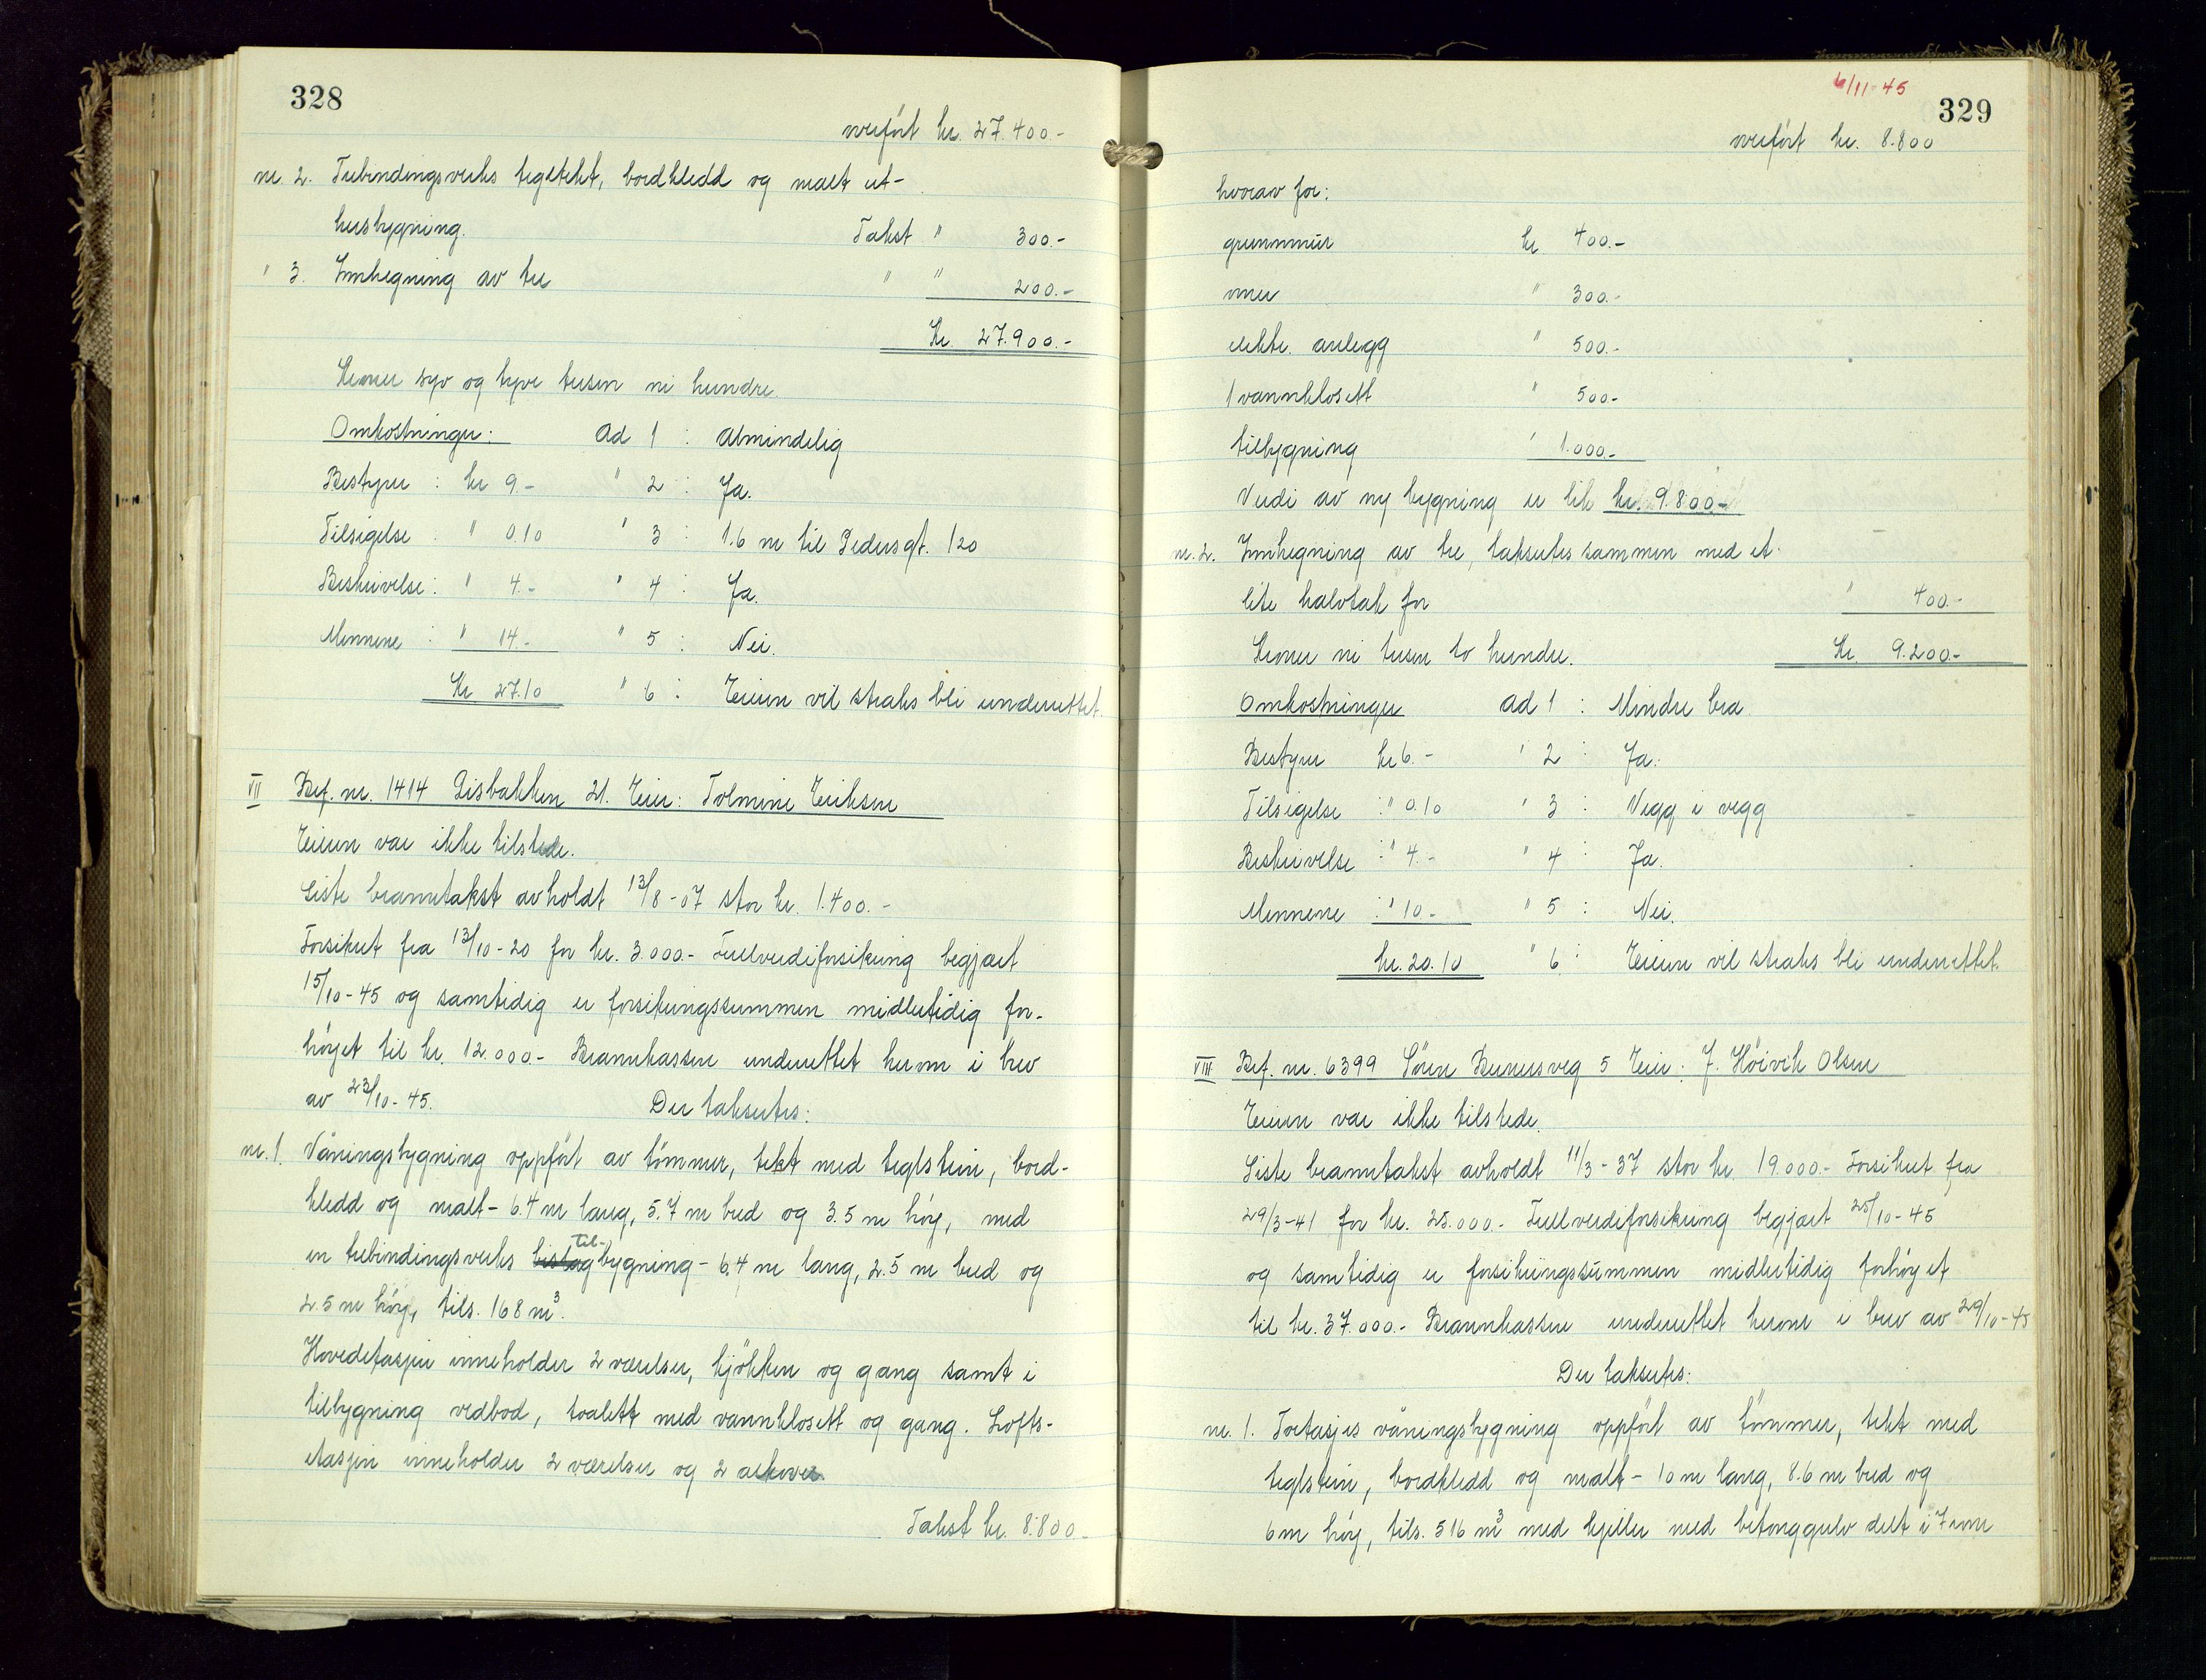 328
overført kr. 27.400.-
nr. 2. Trebindingsverks teglstekt, bordkledd og malt ut-
husbygning. Takst " 300.-
" 3. Innhegning av tre " " 200.-
Kr. 27.900.-
Kroner syv og tyve tusen ni hundre.
Omkostninger: ad 1 : Almindelig
Bestyrer : kr 9.- " 2 : Ja.
Tilsigelse : " 0.10 " 3 : 1.6 m til Pedersgt. 120
Beskrivelse : " 4.- " 4 : Ja.
Mennene : " 14.- " 5 : Nei.
Kr 27.10 " 6 : Eieren vil straks bli underrettet
VII Bef. nr. 1414 Risbakken 21. Eier: Tolmine Eriksen
Eieren var ikke tilstede.
Siste branntakst avholdt 13/8-07 stor kr. 1.400.-
Forsikret fra 13/10-20 for kr. 3.000.- Fullverdiforsikring begjært
15/10-45 og samtidig er forsikringssummen midlertidig for-
høyet til kr. 12.000.- Brannkassen underrettet herom i brev
av 23/10-45. Der takseres:
nr. 1. Våningsbygning oppført av tømmer, tekt med teglstein, bord-
kledd og malt - 6.4 m lang, 5.7 m bred og 3.5 m høy, med
til-
en trebindingsverks bislag bygning - 6.4 m lang, 2.5 m bred og
2.5 m høy, tils. 168 m3.
Hovedetasjen inneholder 2 værelser, kjøkken og gang samt i
tilbygning vedbod, toalett med vannklosett og gang. Lofts-
etasjen inneholder 2 værelser og 2 alkover.
Takst kr. 8.800.-
6/11-45
329
overført kr. 8.800
hvorav for:
grunnmur kr 400.-
ovner " 300.-
elektr. anlegg " 500.-
1 vannklosett " 500.-
tilbygning " 1.000.-
Verdi av ny bygning er lik kr. 9.800.-
nr. 2. Innhegning av tre, takseres sammen med et
lite halvtak for " 400.-
Kroner ni tusen to hundre. Kr. 9.200.-
Omkostninger ad 1 : Mindre bra
Bestyrer kr 6.- " 2 : Ja.
Tilsigelse : " 0.10 " 3 : Vegg i vegg
Beskrivelse : " 4.- " 4 : Ja.
Mennene : " 10.- " 5 : Nei.
kr. 20.10 " 6 : Eieren vil straks bli underrettet.
VIII Bef. nr. 6399 Sören Berners veg 5 Eier: J. Höivik Olsen
Eieren var ikke tilstede.
Siste branntakst avholdt 11/3-37 stor kr. 19.000.- Forsikret fra
29/3-41 for kr. 25.000.- Fullverdiforsikring begjært 25/10-45
og samtidig er forsikringssummen midlertidig forhøyet
til kr. 37.000.- Brannkassen underrettet herom i brev av 29/10-45
Der takseres:
nr. 1. Toetasjes våningsbygning oppført av tømmer, tekt med
teglstein, bordkledd og malt - 10 m lang, 8.6 m bred og
6 m høy, tils. 516 m3 med kjeller med betonggulv delt i 7 rom